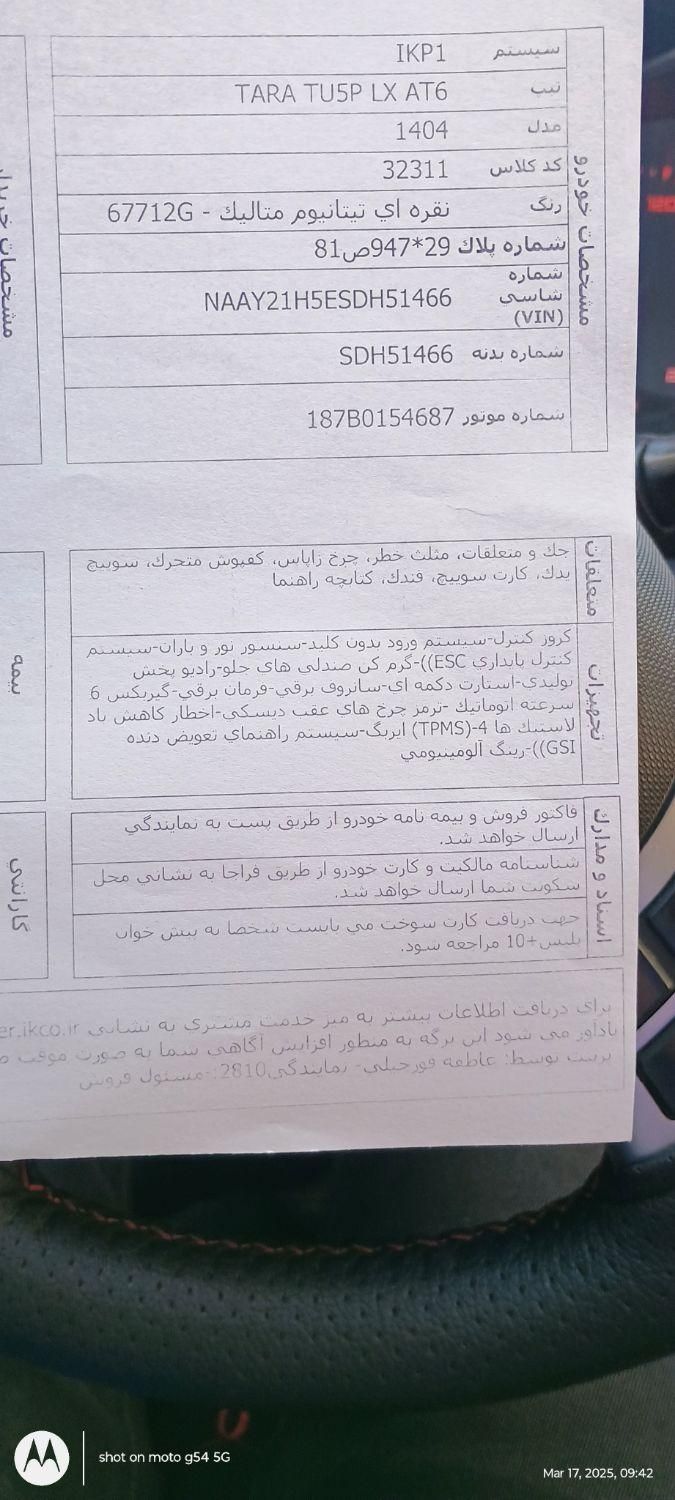 مشخصات خودرو
سیستم IKP1
تیپ TARA TU5P LX AT6
مدل 1404
کد کلاس 32311
رنگ نقره اي تیتانیوم متالیك - 67712G
شماره پلاك 29*947ص81
شماره
شاسی
(VIN)
NAAY21H5ESDH51466
شماره بدنه SDH51466
شماره موتور 187B0154687
متعلقات
جك و متعلقات، مثلث خطر، چرخ زاپاس، كفپوش متحرك، سوییچ
یدك، كارت سوییچ، فندك، كتابچه راهنما
تجهیزات
كروز كنترل-سیستم ورود بدون كلید-سنسور نور و باران-سیستم
كنترل پایداري ESC))-گرم كن صندلي هاي جلو-رادیو پخش
تولیدي-استارت دكمه اي-سانروف برقي-فرمان برقي-گیربكس 6
سرعته اتوماتیك -ترمز چرخ هاي عقب دیسكي-اخطار كاهش باد
لاستیك ها TPMS)-4) ایربگ-سیستم راهنماي تعویض دنده
GSI))-رینگ آلومینیومي
اسناد و مدارك
فاكتور فروش و بیمه نامه خودرو از طریق پست به نمایندگي
ارسال خواهد شد.
شناسنامه مالكیت و كارت خودرو از طریق فراجا به نشاني محل
سكونت شما ارسال خواهد شد.
جهت دریافت كارت سوخت مي بایست شخصا به پیش خوان
پلیس+10 مراجعه شود.
برای دریافت اطلاعات بیشتر به میز خدمت مشتری به نشانی er.ikco.ir
یادآور می شود این برگه به منظور افزایش آگاهی شما به صورت موقت
پرینت توسط: عاطفه قورچیلی- نمایندگی2810:-مسئول فروش
بیمه
گارانتی
shot on moto g54 5G
Mar 17, 2025, 09:42